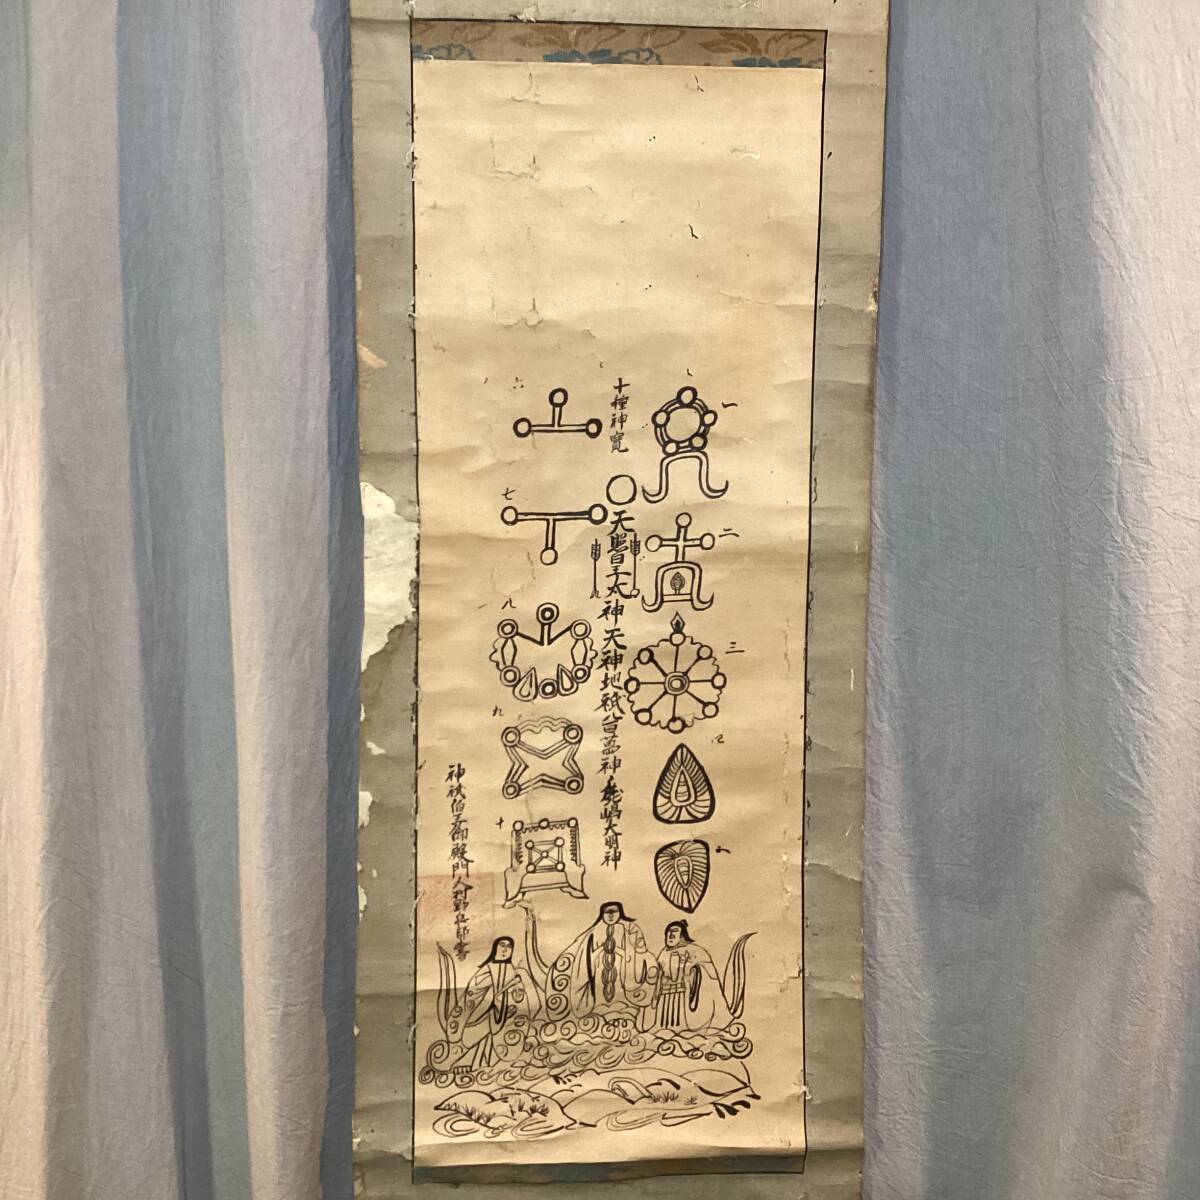 一
二
三
四
五
十種神寶
天照皇太神 天神地祇八百萬神 鹿嶋大明神
六
七
八
九
十
神祇伯王御殿門人村野兵部書